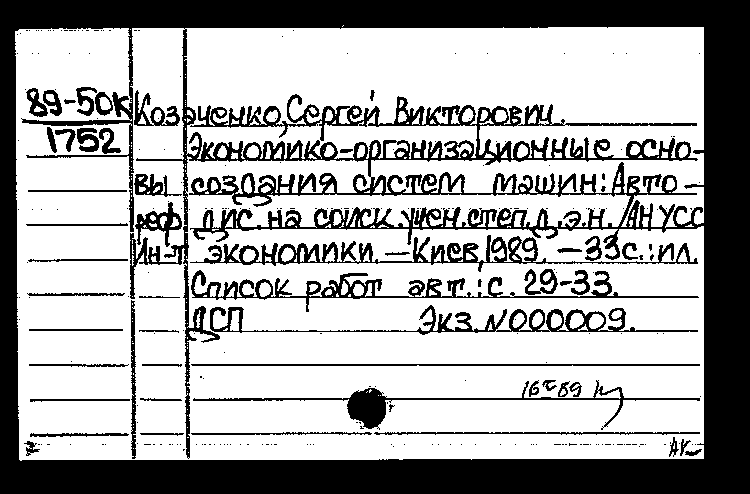 89-50к Козаченко, Сергей Викторович.
1752
Экономико-организационные осно-
вы создания систем машин: Авто-
реф. дис. на соиск. учен. степ. д. э. н. /АН УССР
Ин-т экономики. — Киев, 1989. — 33 с.: ил.
Список работ авт.: с. 29-33.
ДСП Экз. N000009.